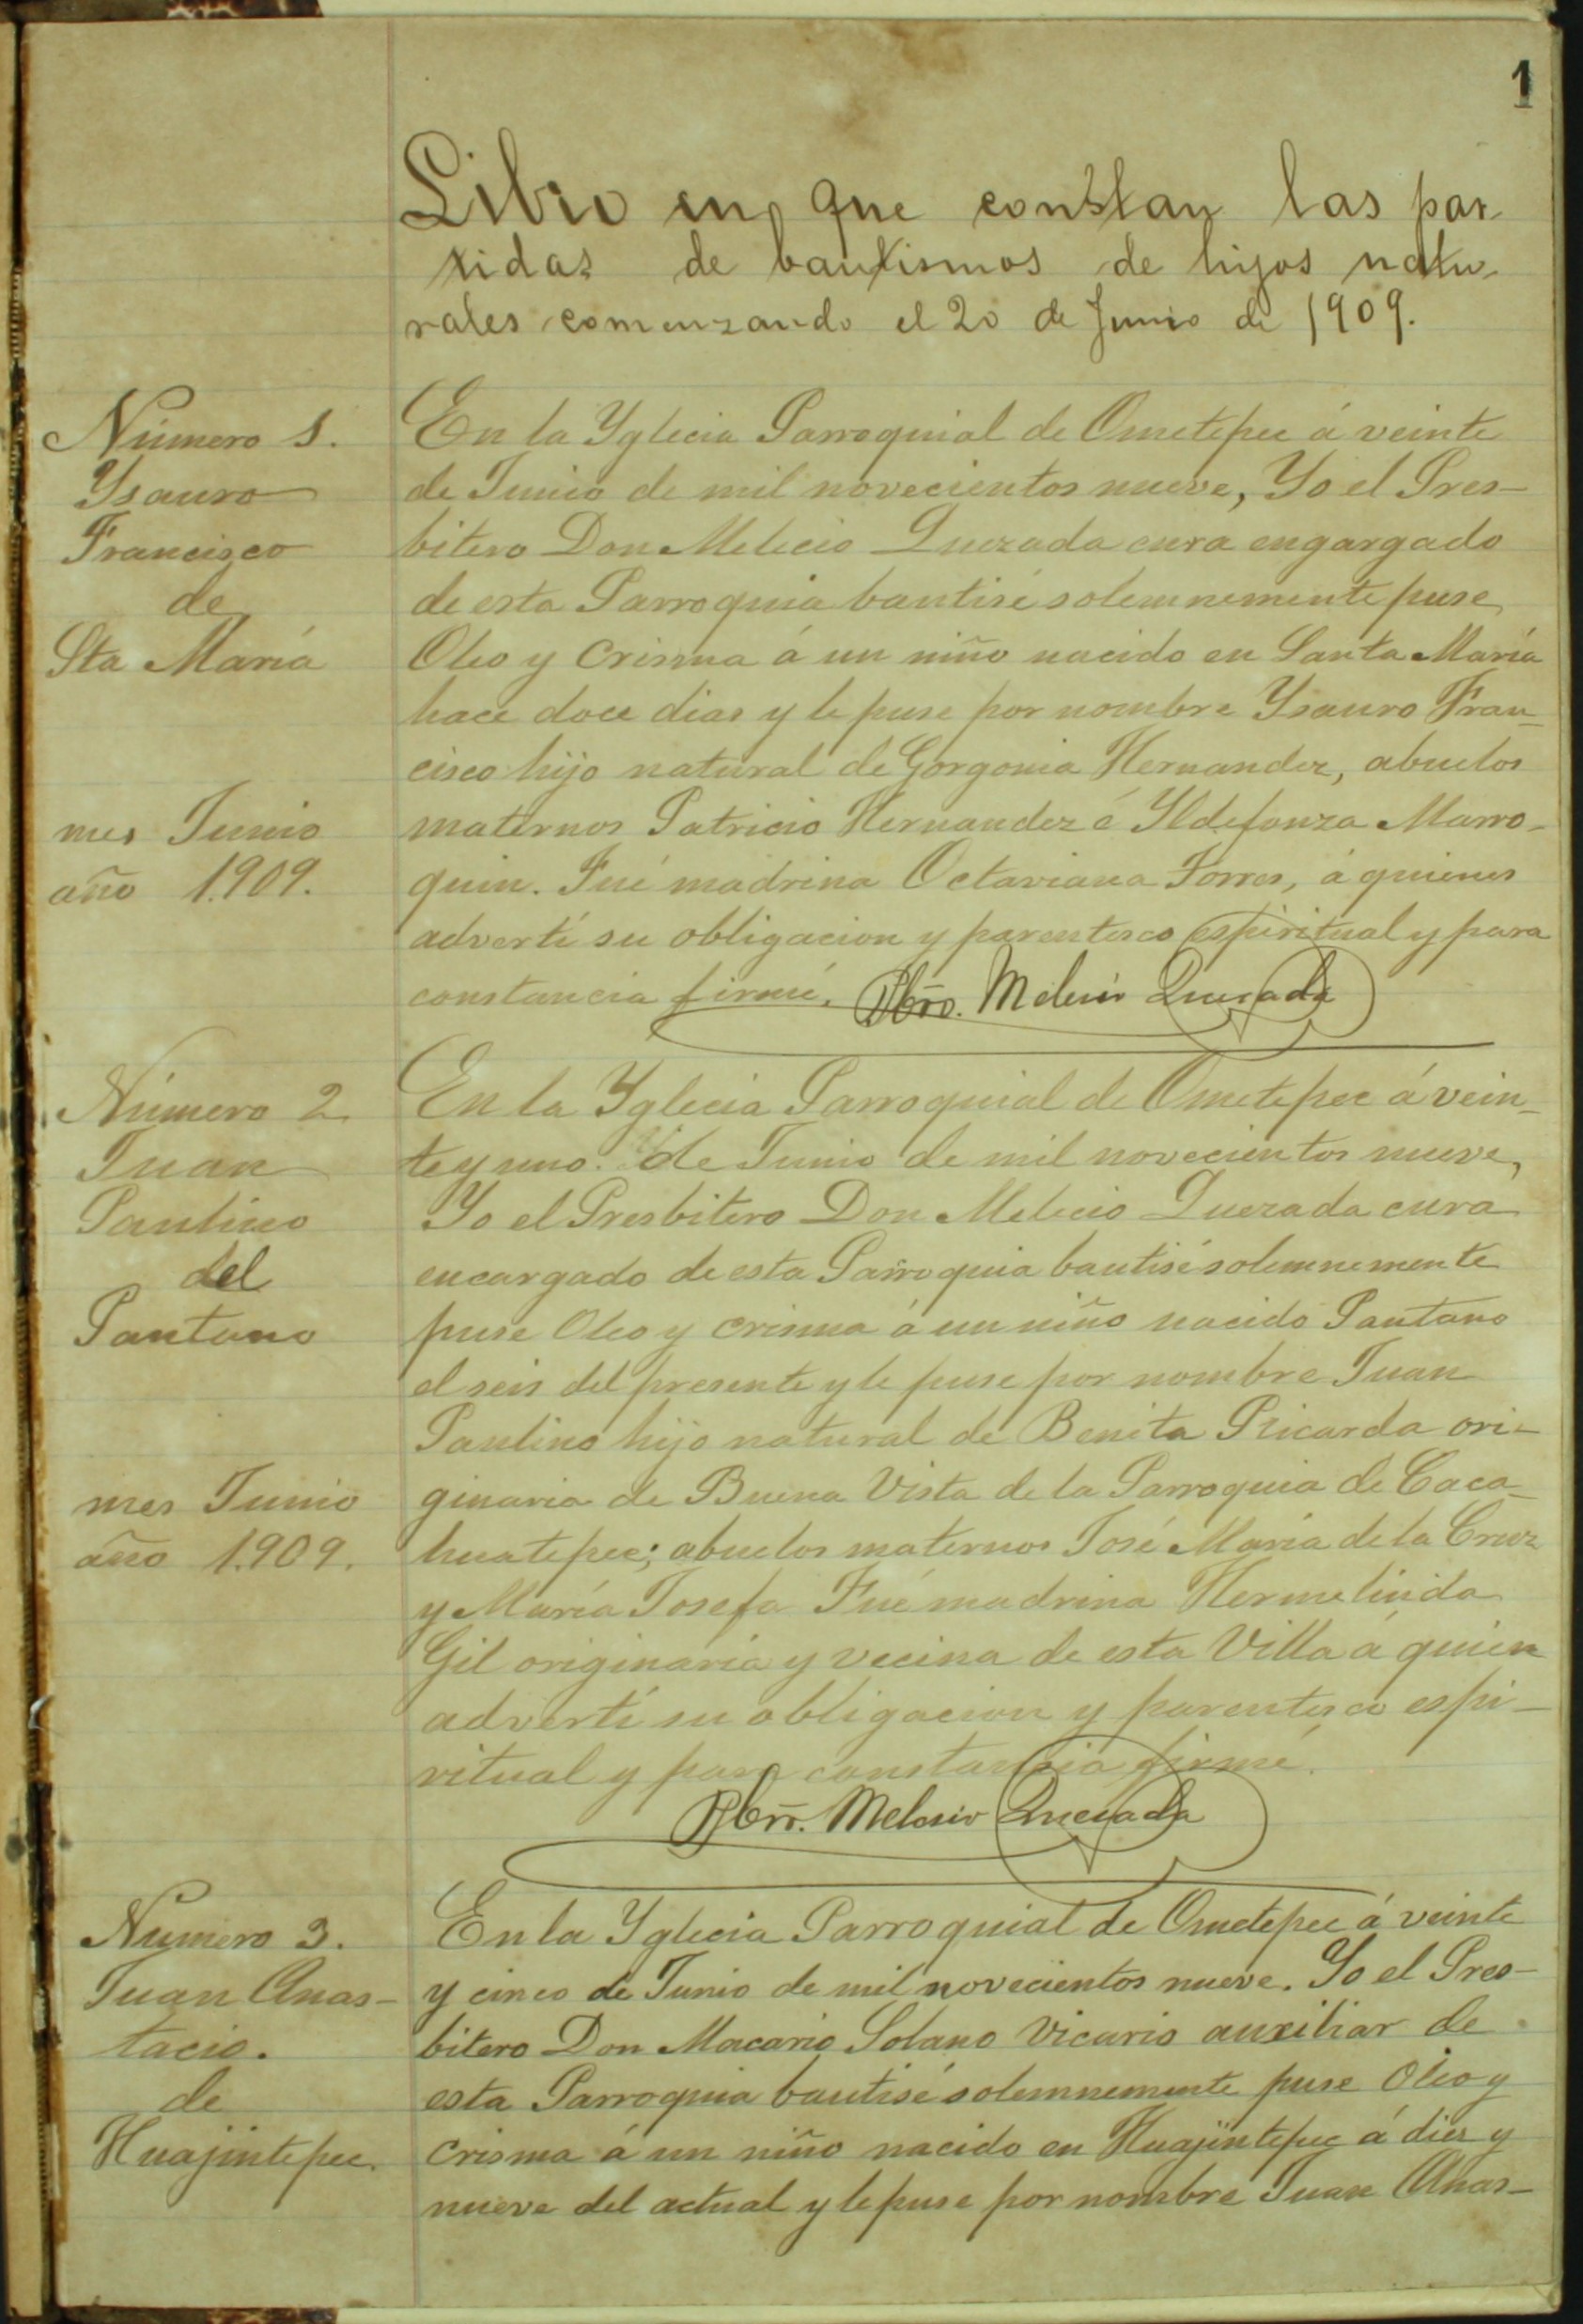 1
Libro en que constan las par-
tidas de bautismos de hijos natu-
rales comenzando el 20 de Junio de 1909.
Número 1.
Ysauro
Francisco
de
Sta María
mes Junio
año 1.909.
En la Yglecia Parroquial de Ometepec á veinte
de Junio de mil novecientos nueve, Yo el Pres-
bitero Don Melecio Quezada cura engargado
de esta Parroquia bautisé solemnemente puse
Oleo y Crisma á un niño nacido en Santa María
hace doce dias y le puse por nombre Ysauro Fran-
cisco hijo natural de Gorgonia Hernandez, abuelos
maternos Patricio Hernandez é Yldefonza Marro-
quin. Fué madrina Octaviana Torres, á quienes
advertí su obligacion y parentesco espiritual y para
constancia firmé. Pbro. Melesio Quesada
Número 2
Juan
Paulino
del
Pantano
mes Junio
año 1.909.
En la Yglecia Parroquial de Ometepec á vein-
te y uno de Junio de mil novecientos nueve,
Yo el Presbitero Don Melecio Quezada cura
encargado de esta Parroquia bautisé solemnemente
puse Oleo y crisma á un niño nacido Pantano
el seis del presente y le puse por nombre Juan
Paulino hijo natural de Benita Ricarda ori-
ginaria de Buena Vista de la Parroquia de Caca-
huatepec; abuelos maternos José María de la Cruz
y María Josefa Fué madrina Hermelinda
Gil originaria y vecina de esta Villa á quien
advertí su obligacion y parentesco espi-
ritual y para constancia firmé.
Pbro. Melesio Quesada
Numero 3.
Juan Anas-
tacio.
de
Huajintepec.
En la Yglecia Parroquial de Ometepec á veinte
y cinco de Junio de mil novecientos nueve. Yo el Pres-
bitero Don Macario Solano Vicario auxiliar de
esta Parroquia bautisé solemnemente puse Oleo y
crisma á un niño nacido en Huajintepec á diez y
nueve del actual y le puse por nombre Juan Anas-